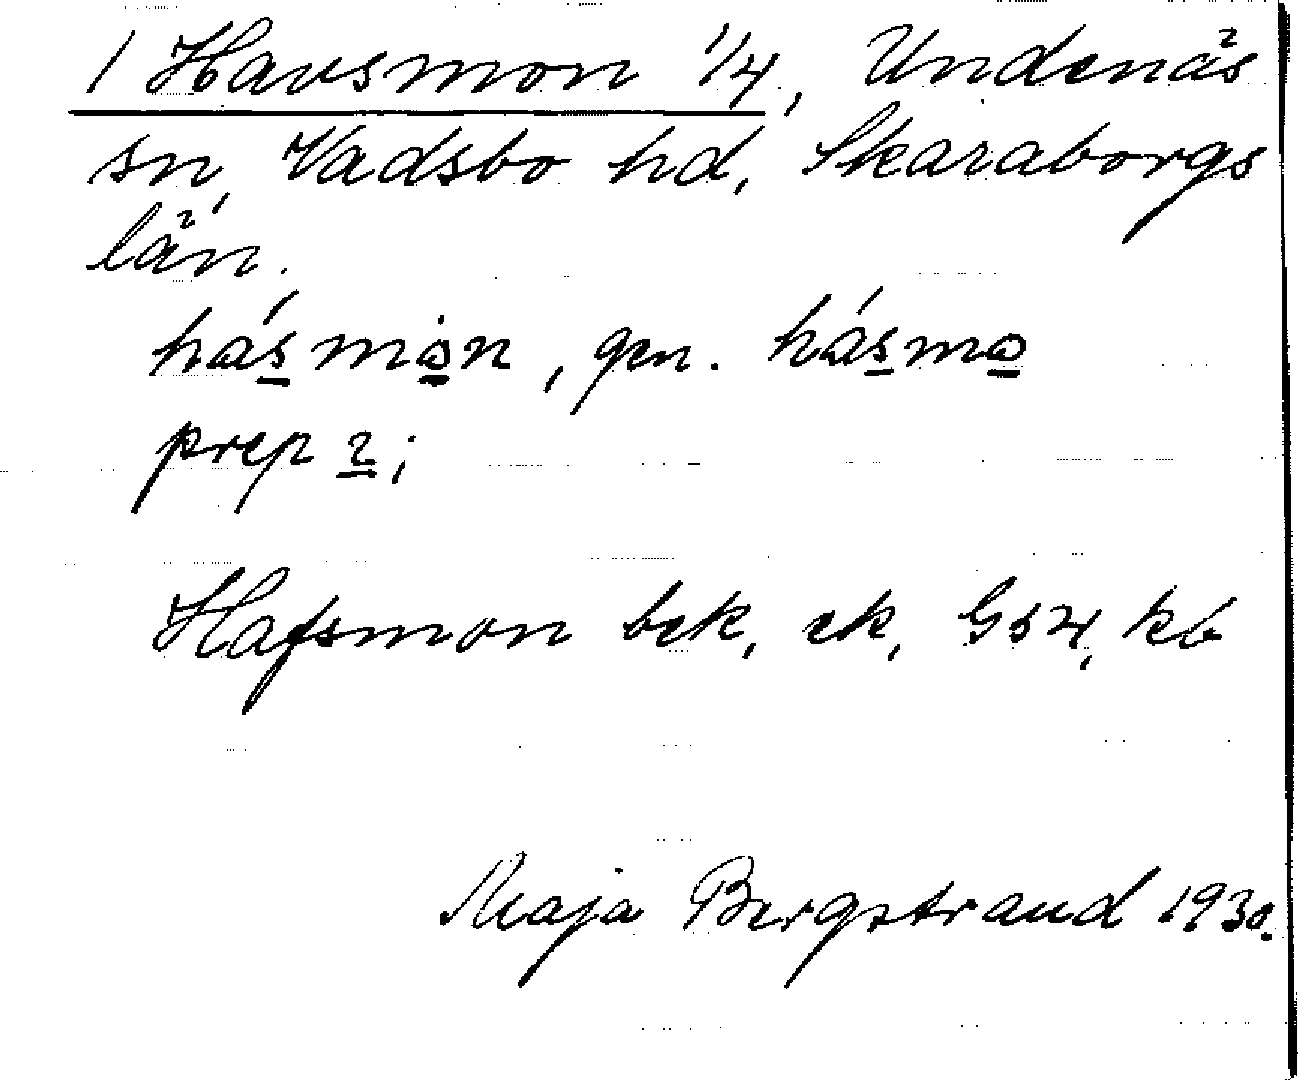 1 Havsmon 1/4, Undenäs
sn, Vadsbo hd, Skaraborgs
län.
hásmòn, gen. hásmo
prep 2;
Hafsmon bek, ek, Gs4, kb
Maja Bergstrand 1930.